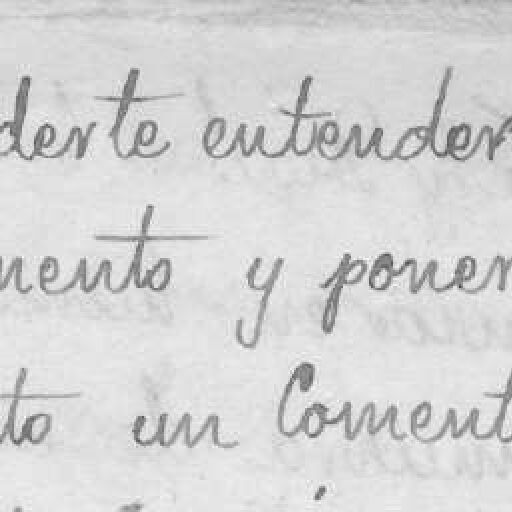 derte entender
mento y poner
to un Coment